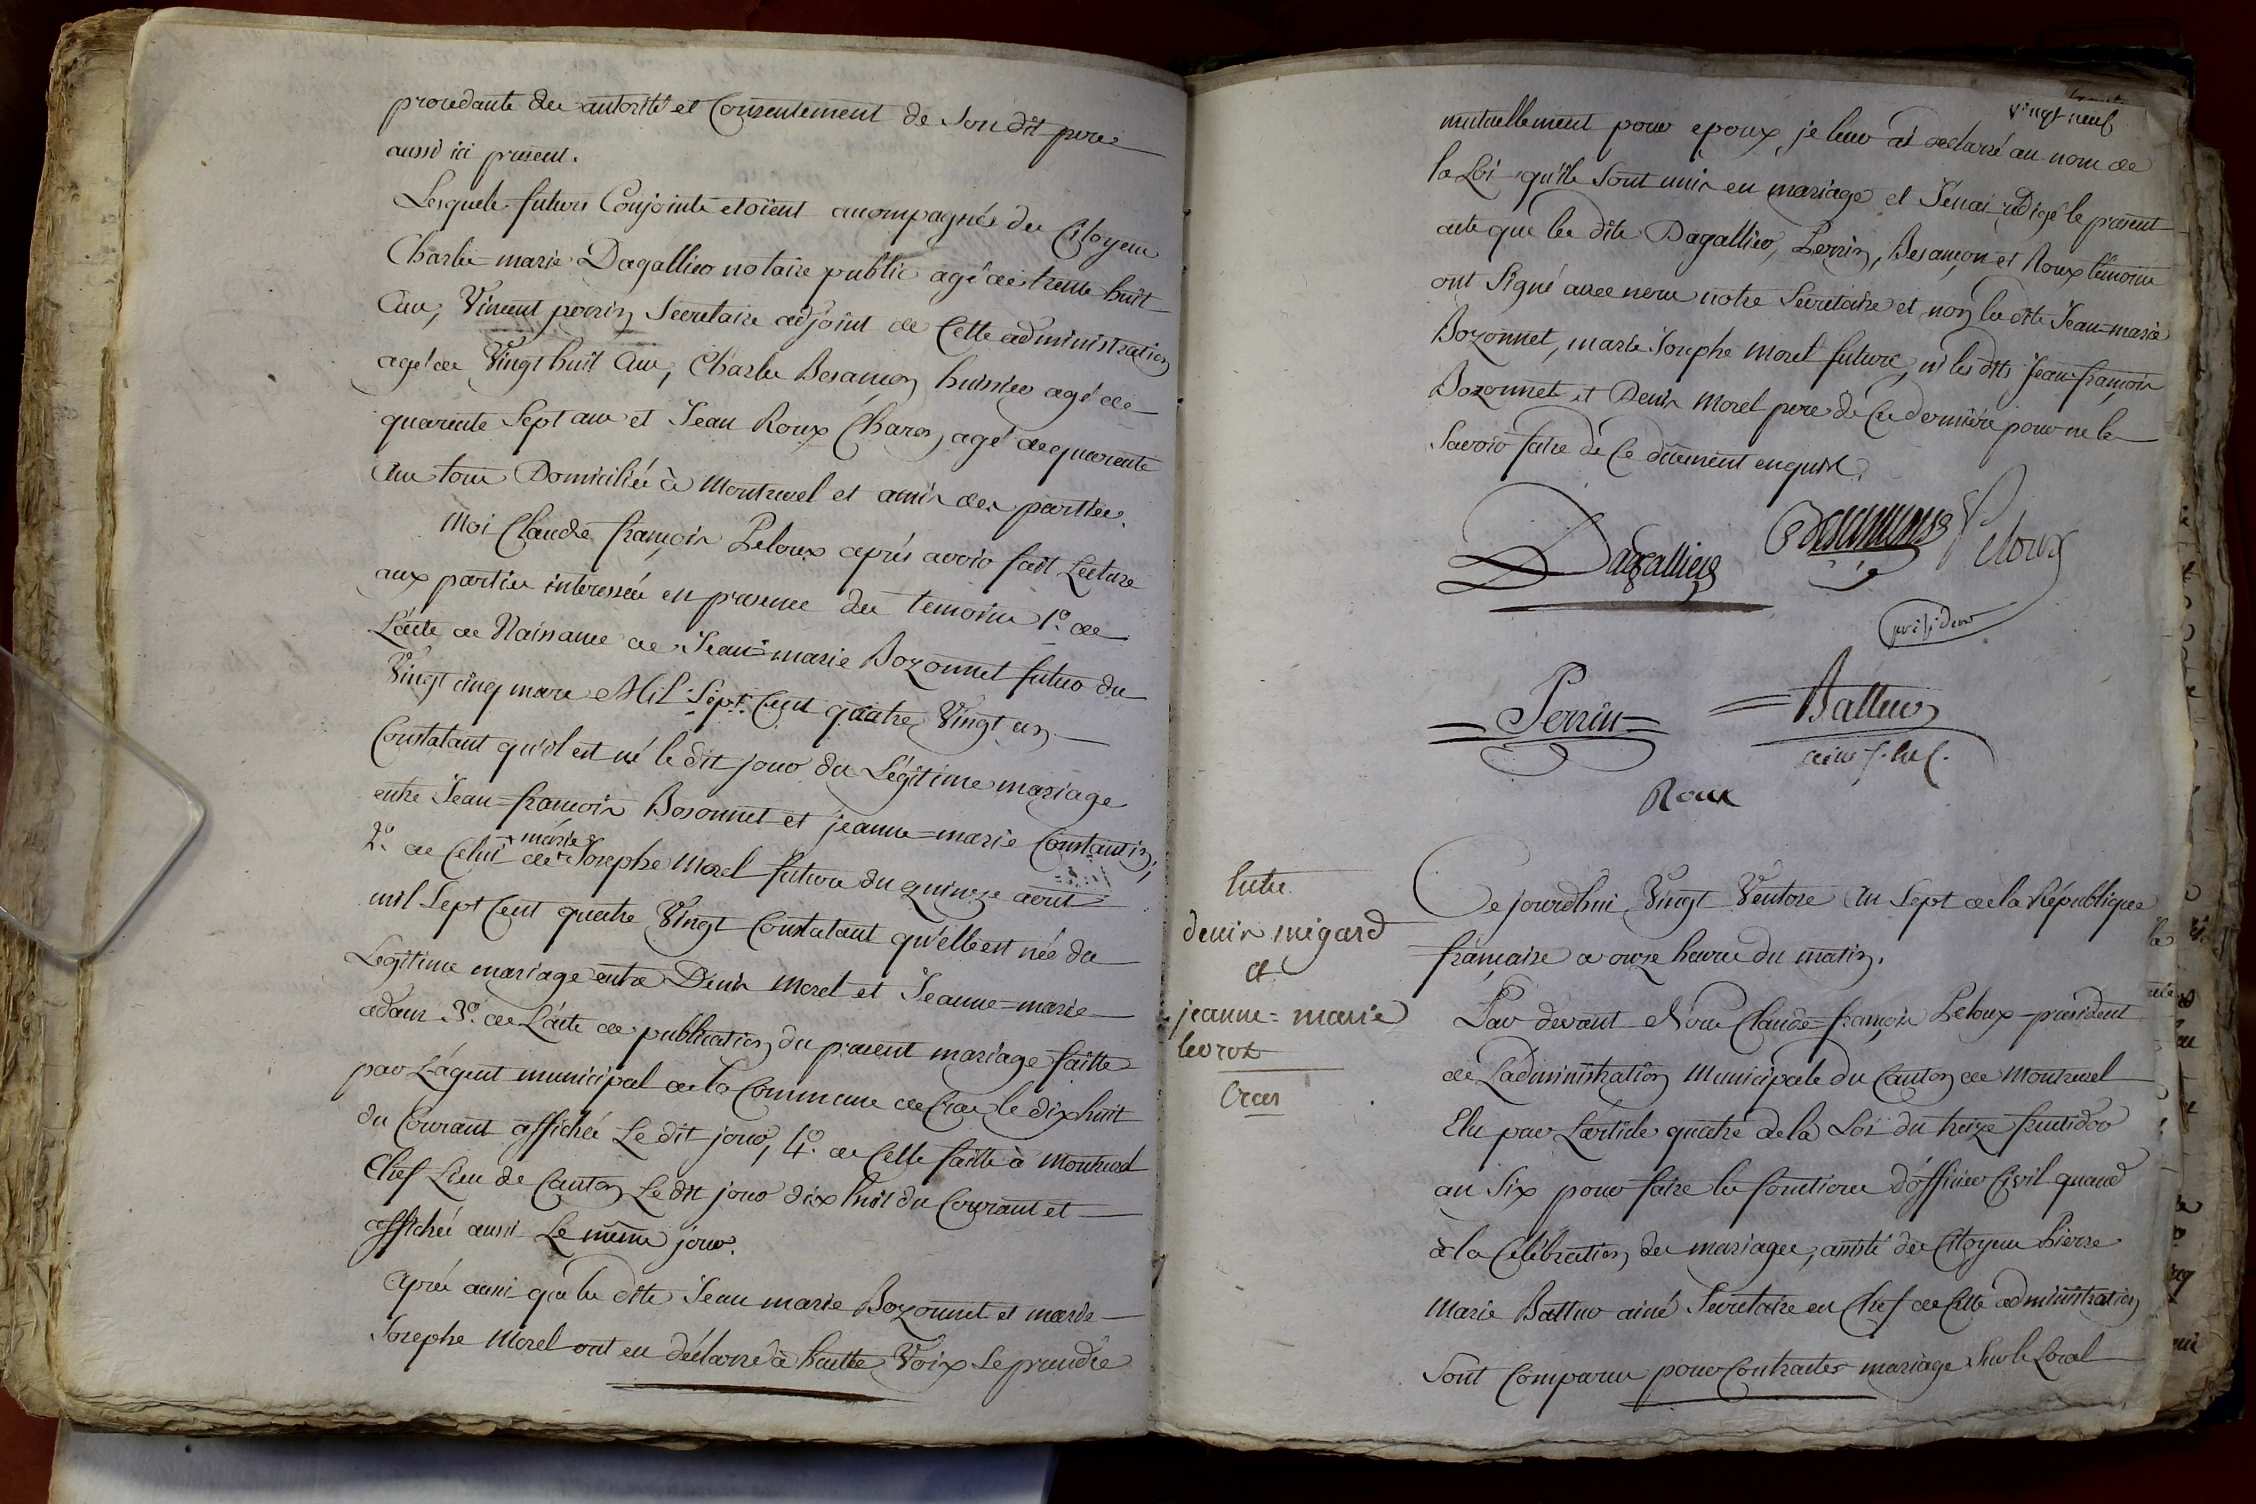 procedante de autorité et Consentement de Son dit pere
aussi ici present.
Lesquels futurs Conjoints etoient acompagnés des Citoyens
Charles-marie Dagallier notaire public agé de trente huit
ans, Vincent perrin Secretaire adjoint de Cette administration
agé de Vingt huit ans, Charles Besançon huissier agé de
quarente Sept ans et Jean Roux Charon agé de quarente
ans tous Domiciliés à Montrevel et amis des parties.
Moi Claude françois Peloux aprés avoir fait Lecture
aux parties interessées en presence des temoins 1.º de
L'acte de Naissance de Jean=marie Bozonnet futur du
Vingt cinq mars Mil Sept Cent quatre Vingt un
Constatant qu'il est né le dit jour du Légitime mariage
entre Jean=francois Bosonnet et jeanne=marie Constantin,
2.º de Celui de marie Josephe Morel future du quinze aout
mil Sept Cent quatre Vingt Constatant qu'elle est née du
Légitime mariage entre Denis Morel et Jeanne=marie
adam 3.º de L'acte de publication du present mariage faitte
par L'ágent municipal de la Commune de Cras le dix huit
du Courant affichée Le dit jour, 4.º de Celle faitte à Montrevel
Chef Lieu de Canton Le dit jour dix huit du Courant et
affichée aussi Le même jour.
aprés aussi que les dits Jean marie Bozonnet et marie
Josephe Morel ont eu déclarré à hautte Voix Se prendre
vingt neuf
mutuellement pour epoux, je leur ai declarré au nom de
la Loi qu'ils Sont unis en mariage et J'en ai redigé le present
acte que les dits Dagallier, Perrin, Besançon et Roux témoins
ont Signé avec nous notre Secretaire et non les dits Jean=marie
Bozonnet, marie Josephe Morel future, ni les dits Jean=françois
Bozonnet et Denis Morel pere de Ce derniére pour ne le
Savoir faire de Ce düement enquis.
Dagallier
Besançon
Peloux
président
Perrin
Battur
Roux
Entre
denis migard
et
jeanne=marie
levrot
Cras
Ce jourdhui Vingt Ventose an Sept de la République
française a onze heures du matin.
Par devant Nous Claude=françois Peloux président
de L'administration Municipale du Canton de Montrevel
Elu par L'article quatre de la Loi du treize fructidor
an Six pour faire les fonctions d'officier Civil quand
à la Célébration des mariages, assisté du Citoyen Pierre
Marie Battur ainé Secretaire en Chef de Cette administration
Sont Comparus pour Contracter mariage Sur le Local